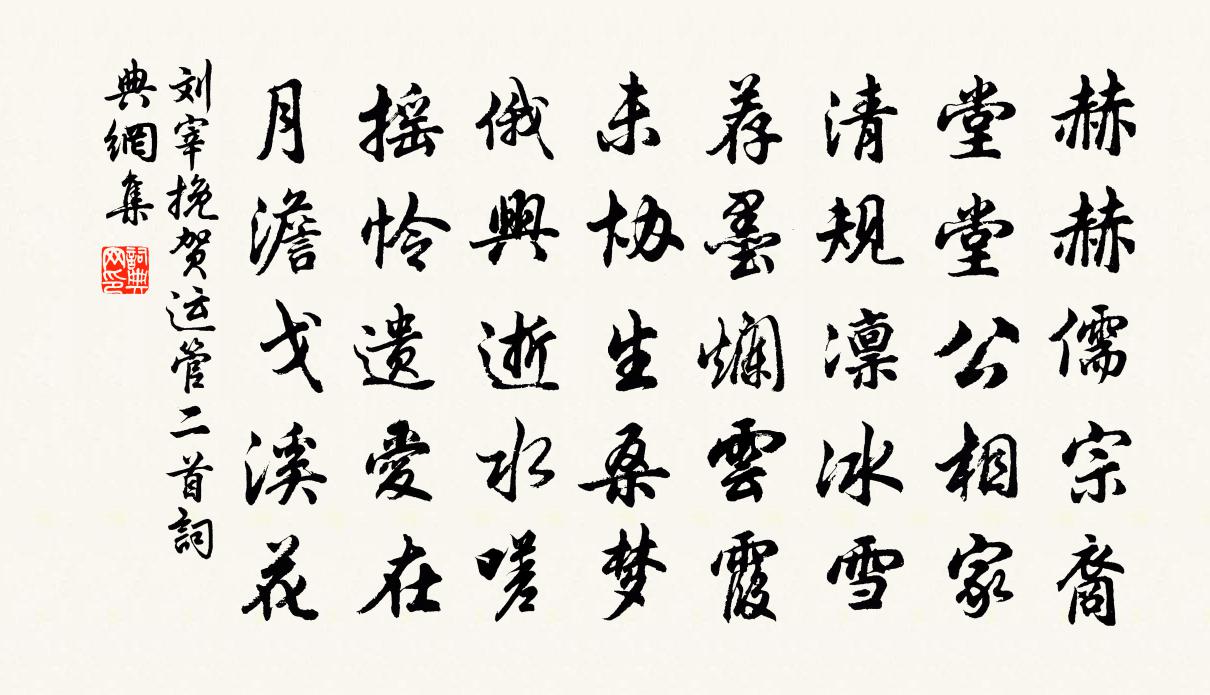 赫赫儒宗裔
堂堂公相家
清规凛冰雪
荐墨爛雲霞
未协生桑梦
俄興逝水嗟
摇怜遗愛在
月澹弋溪花
刘宰挽贺运管二首詞
典網集
詞典网印